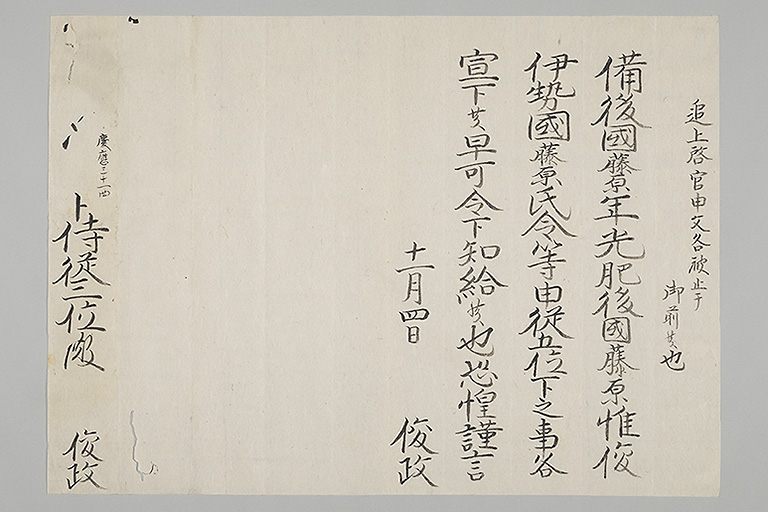 追上啓官申文各被止于
御前候也
備後國藤原年光肥後國藤原惟俊
伊勢國藤原氏令等申從五位下之事各
宣下候早可令下知給候也恐惶謹言
十一月四日
俊政
慶應三十一四
卜侍從三位殿
俊政